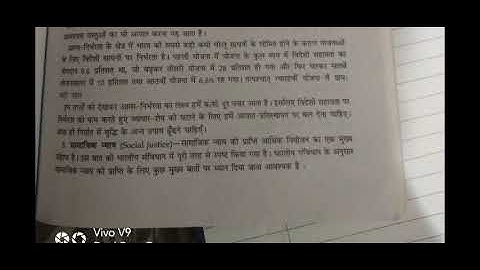 आवश्यक वस्तुओं का भी आयात करना पड़ जाता है।
आत्म-निर्भरता के क्षेत्र में भारत की सबसे बड़ी कमी घरेलू साधनों के सीमित होने के कारण योजनाओं
के लिए विदेशी साधनों पर निर्भरता है। पहली योजना में योजना के कुल व्यय में विदेशी सहायता का
9.6 प्रतिशत था, जो बढ़कर तीसरी योजना में 28 प्रतिशत हो गया और फिर घटकर पाँचवीं
में 13 प्रतिशत तथा आठवीं योजना में 6.6% रह गया। योजना में
इन तथ्यों को देखकर आत्म-निर्भरता का लक्ष्य हमें काफी दूर नजर आता है। इसलिए विदेशी सहायता पर
निर्भरता को कम करते हुए व्यापार-शेष को घटाने के लिए हमें आयात-प्रतिस्थापन पर बल देना चाहिए।
साथ ही निर्यात में वृद्धि के अन्य उपाय ढूँढने चाहिएँ।
5. सामाजिक न्याय (Social justice)—सामाजिक न्याय की प्राप्ति आर्थिक नियोजन का एक मुख्य
उद्देश्य है। इस बात को भारतीय संविधान में पूरी तरह से स्पष्ट किया गया है। भारतीय संविधान के अनुसार
सामाजिक न्याय की प्राप्ति के लिए कुछ मुख्य बातों पर ध्यान दिया जाना आवश्यक है
Vivo V9